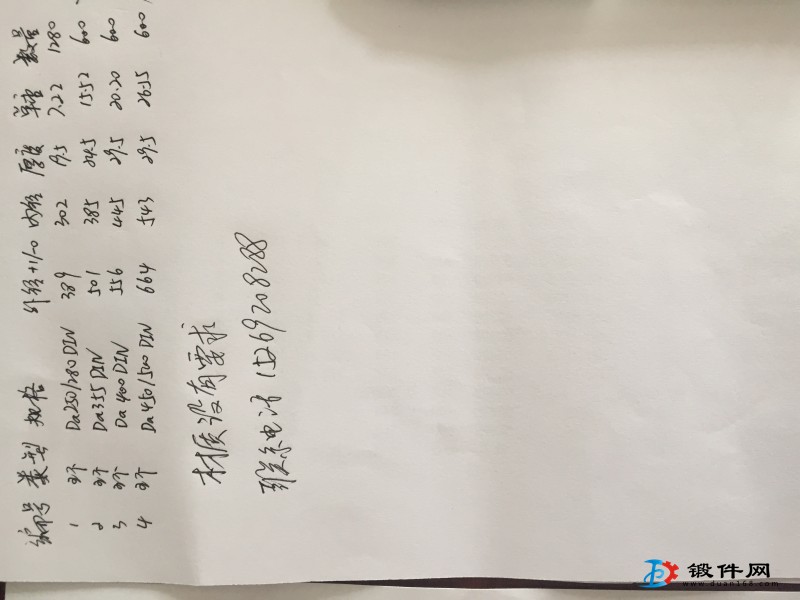 编号 类型 规格 外径+1/-0 内径 厚度 单重 数量
1 环 Da250/280 DIN 389 302 19.5 7.22 1280
2 环 Da355 DIN 501 385 24.5 15.52 600
3 环 Da400 DIN 556 445 29.5 20.20 600
4 环 Da450/500 DIN 664 543 29.5 26.55 600
材质没有要求
联系电话 15269208288
锻件网
www.duan168.com